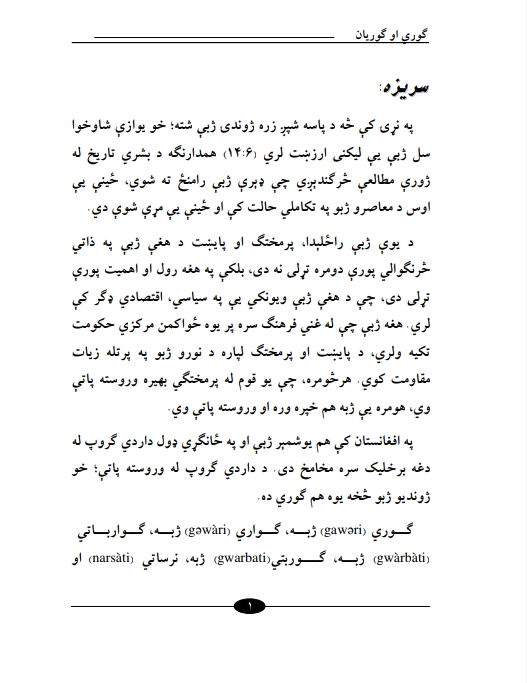 گوري او گوريان
سريزه:
په نړۍ کې څه د پاسه شپږ زره ژوندۍ ژبې شته؛ خو يوازې شاوخوا
سل ژبې يې ليکنۍ ارزښت لري (۱۴:۶) همدارنګه د بشري تاريخ له
ژورې مطالعې څرګندېږي چې ډېرې ژبې رامنځ ته شوي، ځينې يې
اوس د معاصرو ژبو په تکاملي حالت کې او ځينې يې مړې شوې دي.
د يوې ژبې راځلېدا، پرمختګ او پايښت د هغې ژبې په ذاتي
څرنګوالي پورې دومره تړلی نه دی، بلکې په هغه رول او اهميت پورې
تړلی دی، چې د هغې ژبې ويونکي يې په سياسي، اقتصادي ډګر کې
لري. هغه ژبې چې له غني فرهنګ سره پر يوه ځواکمن مرکزي حکومت
تکيه ولري، د پايښت او پرمختګ لپاره د نورو ژبو په پرتله زيات
مقاومت کوي. هرڅومره، چې يو قوم له پرمختګې بهيره وروسته پاتې
وي، هومره يې ژبه هم خپره وره او وروسته پاتې وي.
په افغانستان کې هم يوشمېر ژبې او په ځانګړي ډول داردي ګروپ له
دغه برخليک سره مخامخ دی. د داردي ګروپ له وروسته پاتې؛ خو
ژونديو ژبو څخه يوه هم ګوري ده.
ګوري (gawəri) ژبه، ګواري (gəwàri) ژبه، ګوارباتي
(gwàrbàti) ژبه، ګوربتي(gwarbati) ژبه، نرساتي (narsàti) او
۱